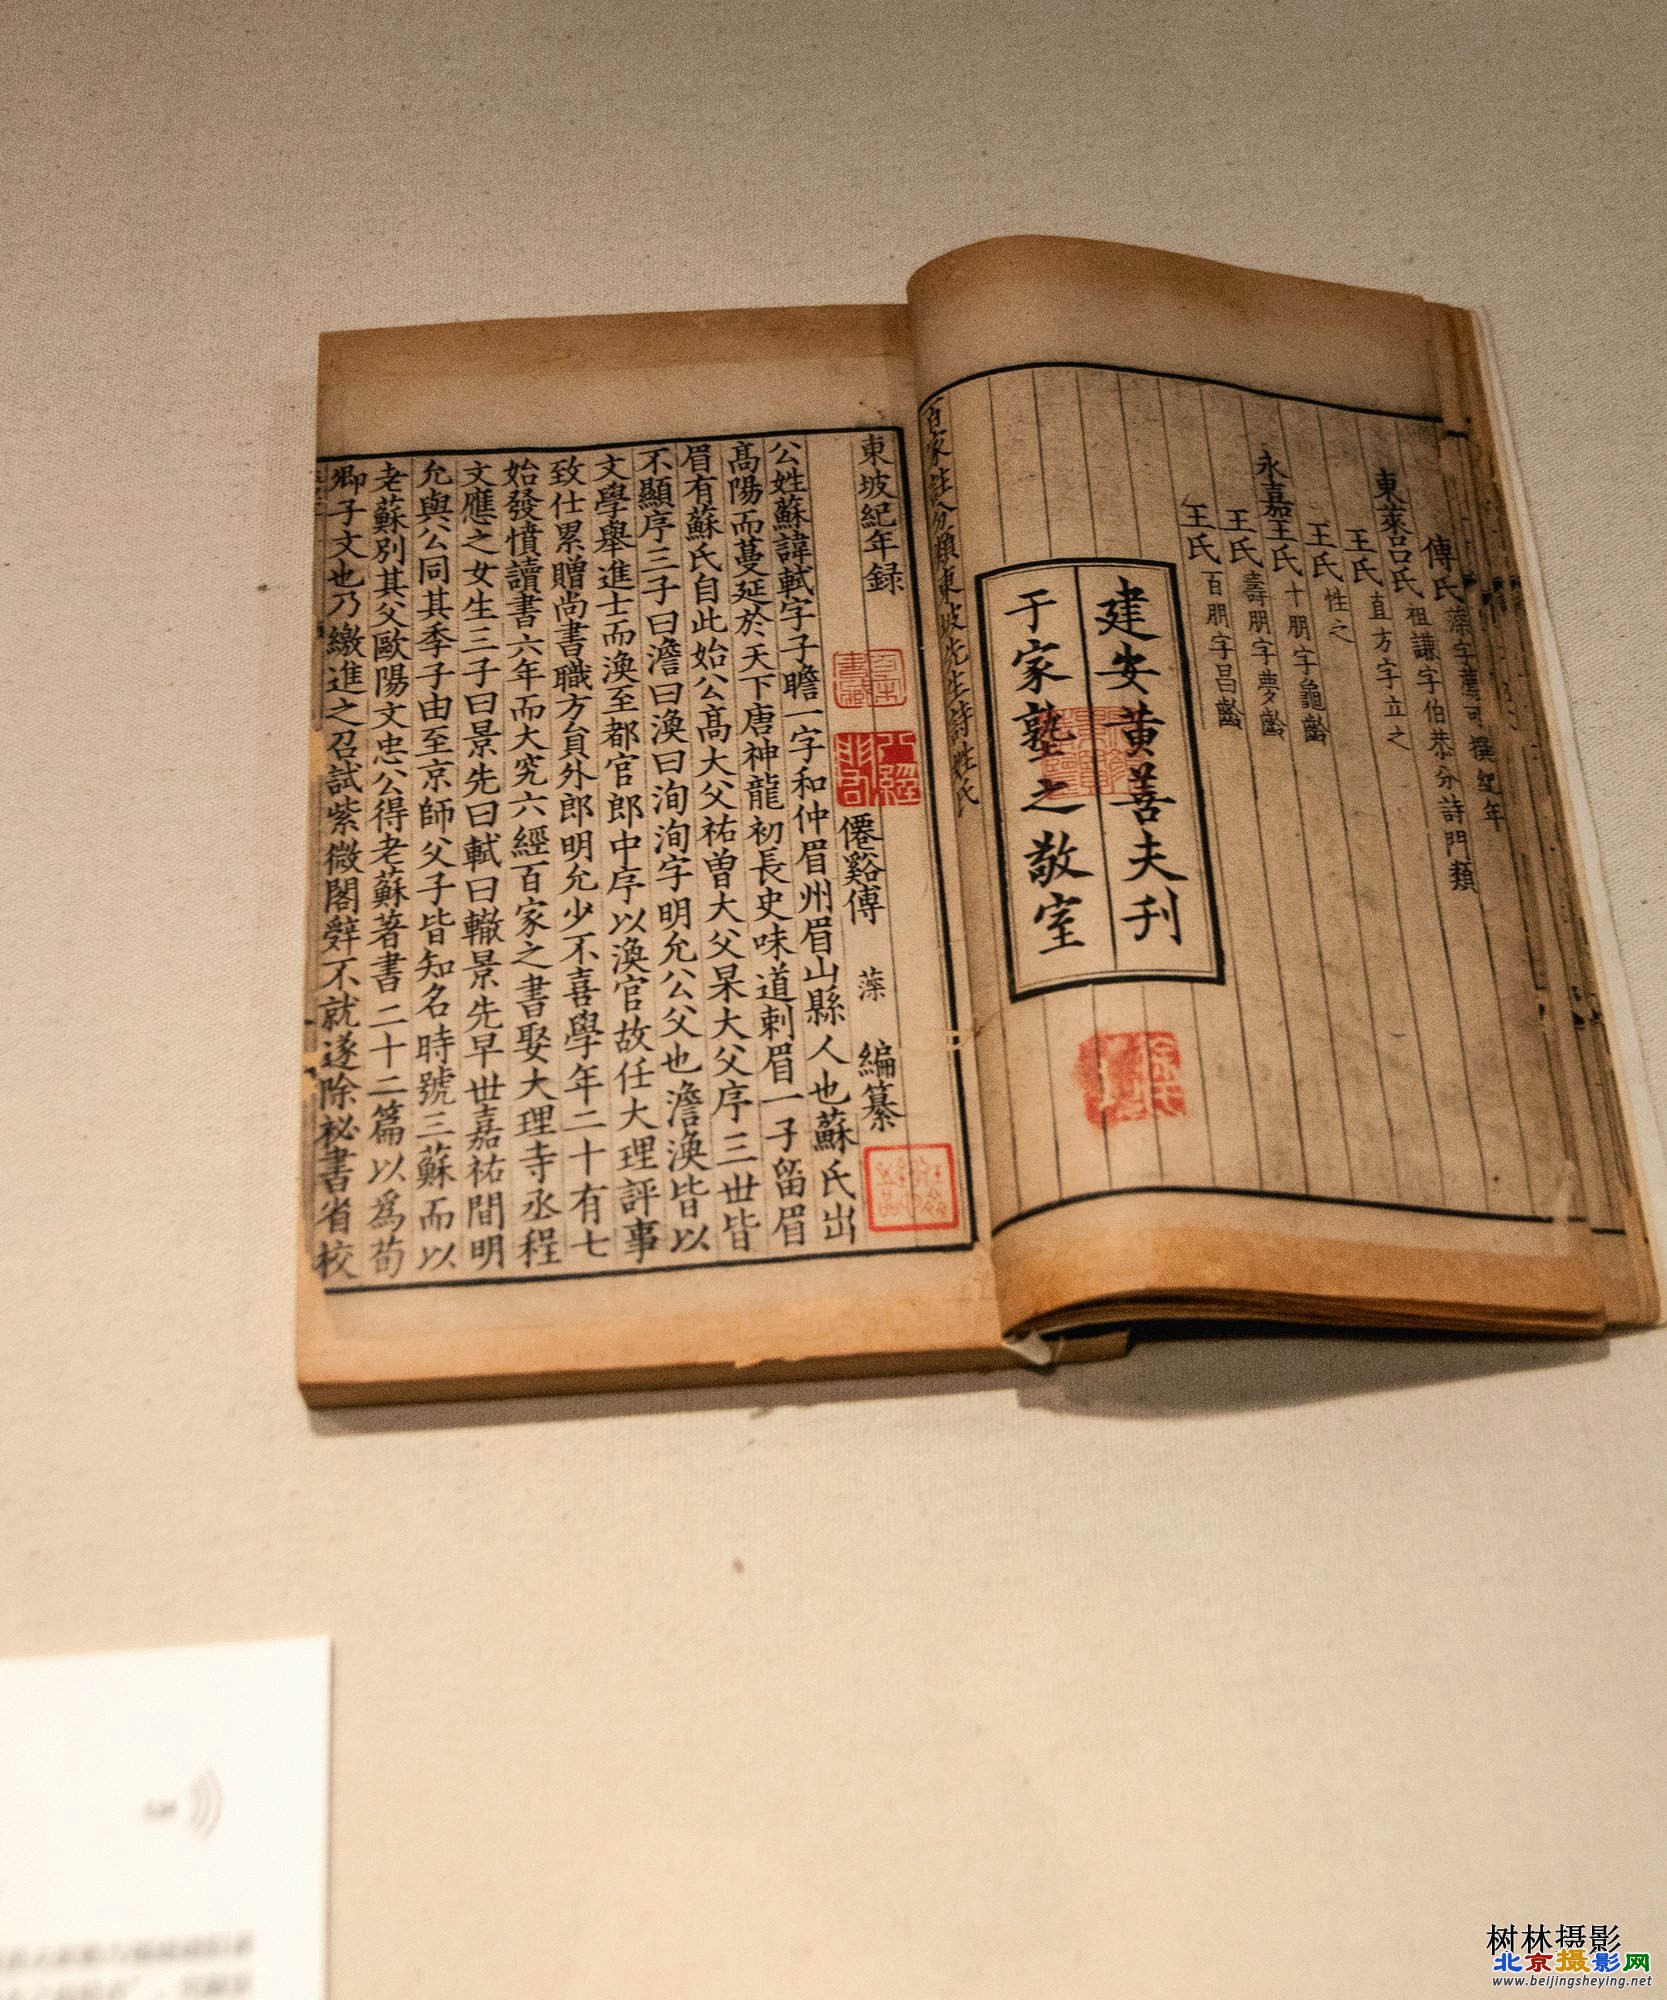 傅氏 藻字薦可撰紀年
東萊呂氏 祖謙字伯恭分詩門類
王氏 直方字立之
王氏 性之
永嘉王氏 十朋字龜齡
王氏 壽朋字夢齡
王氏 百朋字昌齡
建安黄善夫刊
于家塾之敬室
百家註分類東坡先生詩姓氏
東坡紀年録
僊谿傅 藻 編纂
公姓蘇諱軾字子瞻一字和仲眉州眉山縣人也蘇氏出
髙陽而蔓延於天下唐神龍初長史味道刺眉一子留眉
眉有蘇氏自此始公髙大父祜曽大父杲大父序三世皆
不顯序三子曰澹曰渙曰洵洵字明允公父也澹渙皆以
文學舉進士而渙至都官郎中序以渙官故任大理評事
致仕累贈尚書職方員外郎明允少不喜學年二十有七
始發憤讀書六年而大究六經百家之書娶大理寺丞程
文應之女生三子曰景先曰軾曰轍景先早世嘉祐間明
允與公同其季子由至京師父子皆知名時號三蘇而以
老蘇别其父歐陽文忠公得老蘇著書二十二篇以爲荀
卿子文也乃繳進之召試紫微閣辤不就遂除祕書省校
树林摄影
北京摄影网
www.beijingsheying.net